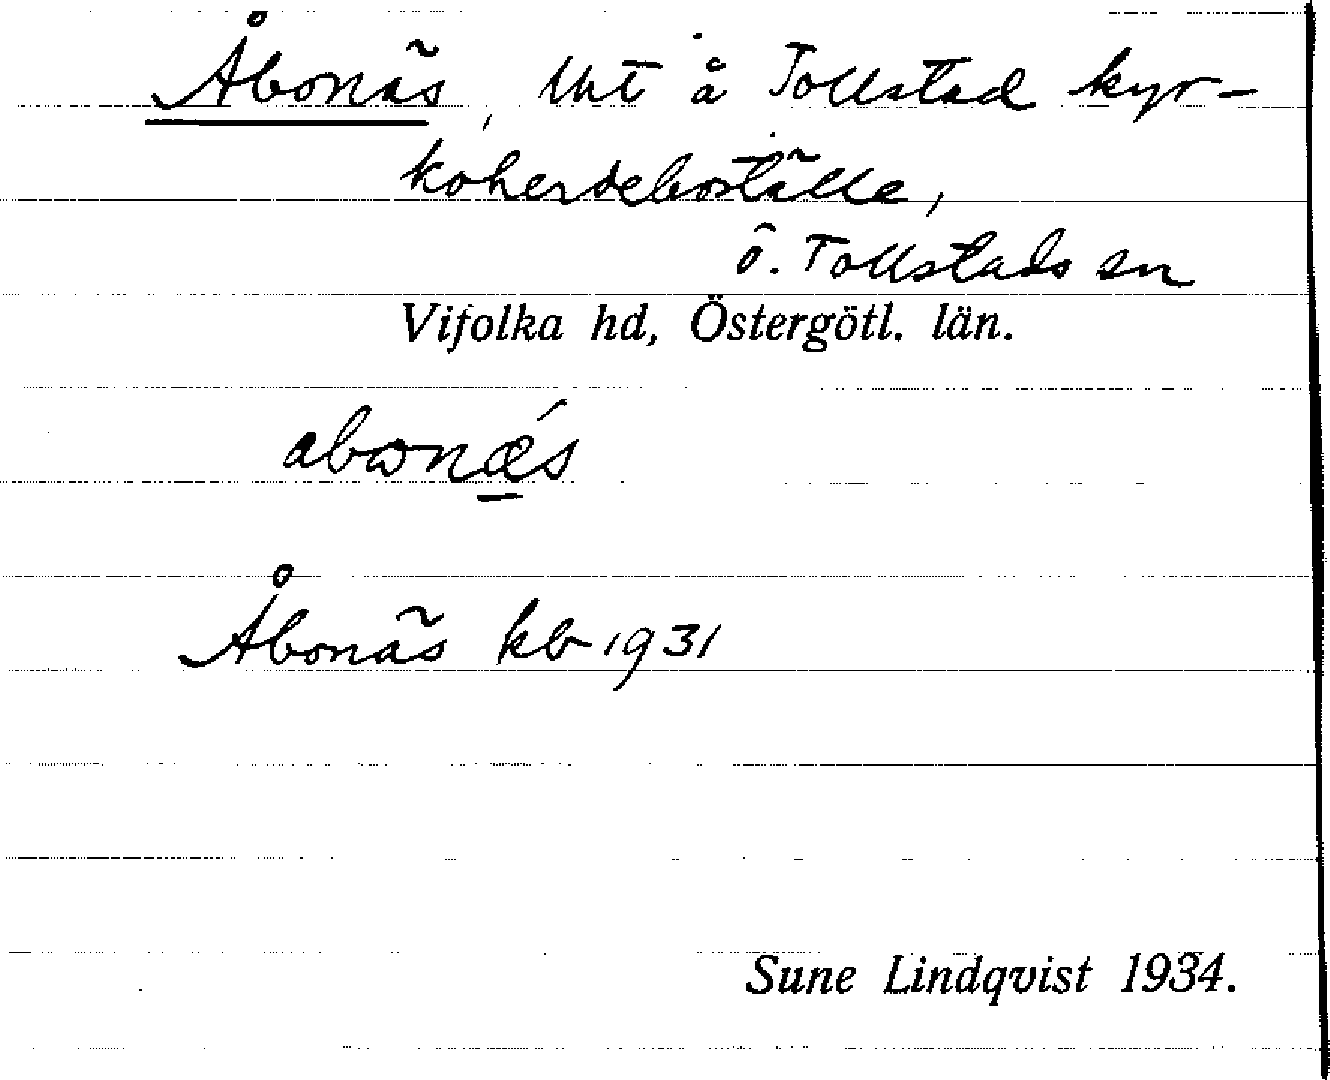 Åbonäs, lht å Tollstad kyr-
koherdeboställe,
ö. Tollstads sn
Vifolka hd, Östergötl. län.
abωnǽs
Åbonäs kb 1931
Sune Lindqvist 1934.